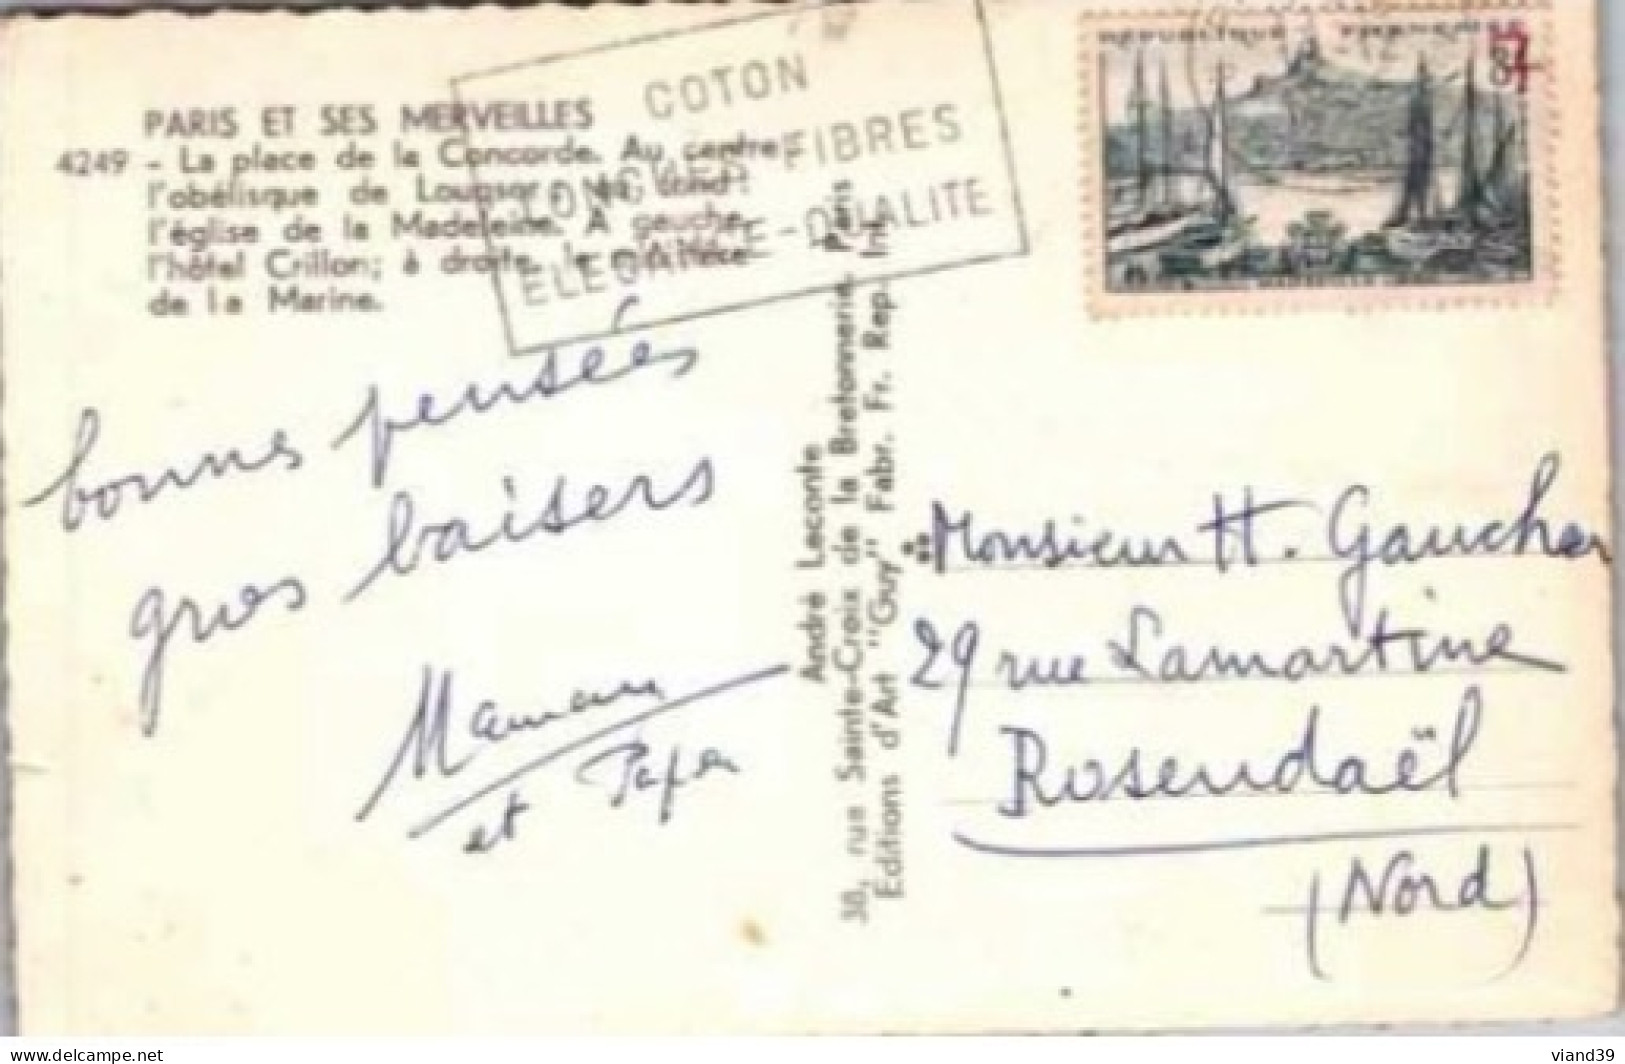 PARIS ET SES MERVEILLES
4249 - La place de la Concorde. Au centre
l'obélisque de Louqsor; au fond:
l'église de la Madeleine. A gauche,
l'hôtel Crillon; à droite, le ministère
de la Marine.
COTON
LONGUES FIBRES
ELEGANCE-QUALITE
bonnes pensées
gros baisers
Maman
et Papa
André Leconte
38, rue Sainte-Croix de la Bretonnerie. Paris
Editions d'Art "Guy" Fabr. Fr. Rep. Int.
Monsieur H. Gaucher
29 rue Lamartine
Rosendaël
(Nord)
viand39